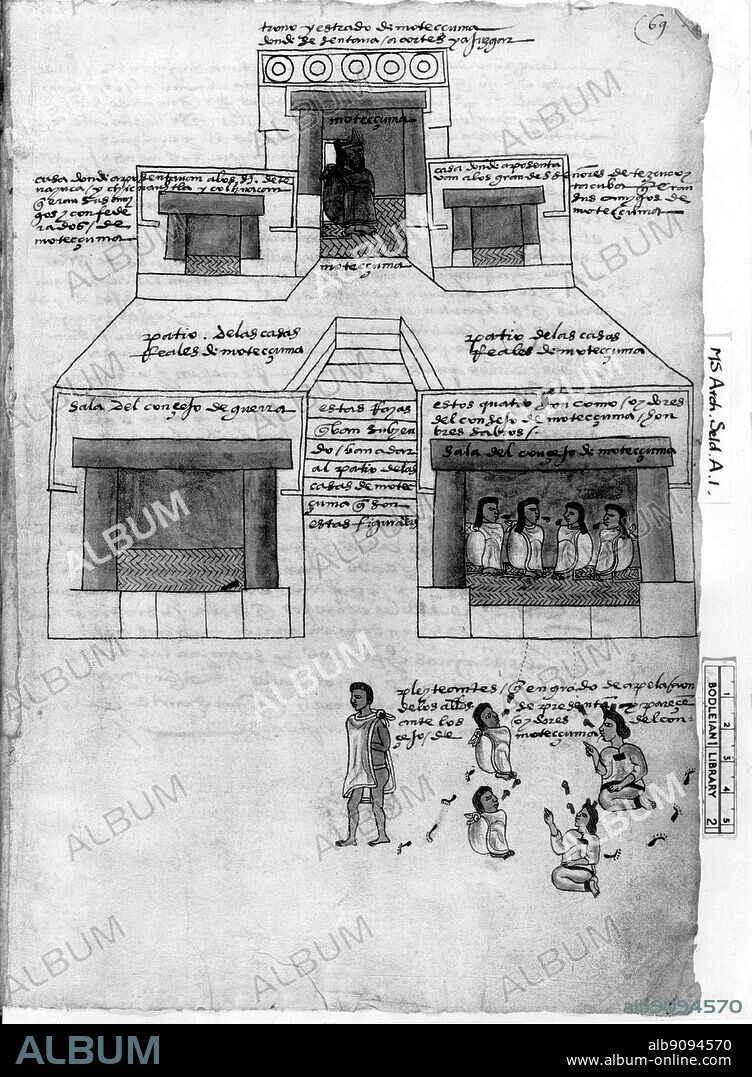 trono y estrado de moteccuma
donde se sentava / a cortes y a juzgar
69
moteccuma
casa donde aposentavan a los Sˢ. de te
nayuca / y chicnauhtla y colhuacan
q̄ eran sus ami
gos y confede
rados / de
moteccuma
casa donde aposenta
van a los grandes señores de tezcuco y
tacuba q̄ eran
sus amigos de
moteccuma
moteccuma
patio . de las casas
Reales de moteccuma
patio de las casas
Reales de moteccuma
sala del consejo de guerra
estas Rayas
q̄ van subyen
do / van a dar
al patio de las
casas de motec
çuma q̄ son
estas figuradas
estos quatro son como / oydores
del consejo de moteccuma / hon
bres sabios /.
sala del consejo de moteccuma
pleyteantes / q̄ en grado de apelaçion
de los allds de presentan y pareçe
ante los oydores del con
sejo / de moteccuma
MS Arch. Seld. A. 1.
BODLEIAN LIBRARY
1 2 3 4 5
2
ALBUM
alb9094570
ALBUM
alb9094570
www.album-online.com